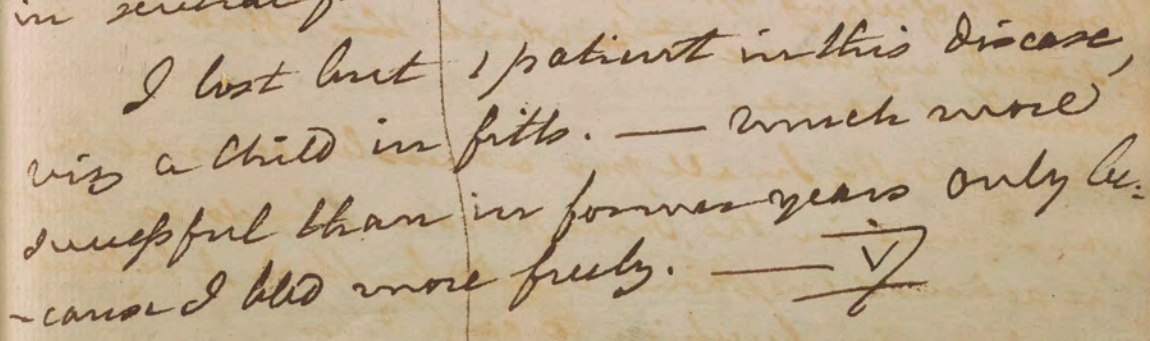 in several
I lost but 1 patient in this disease,
viz a Child in fitts. — much more
successful than in former years only be:
-cause I bled more freely. — V